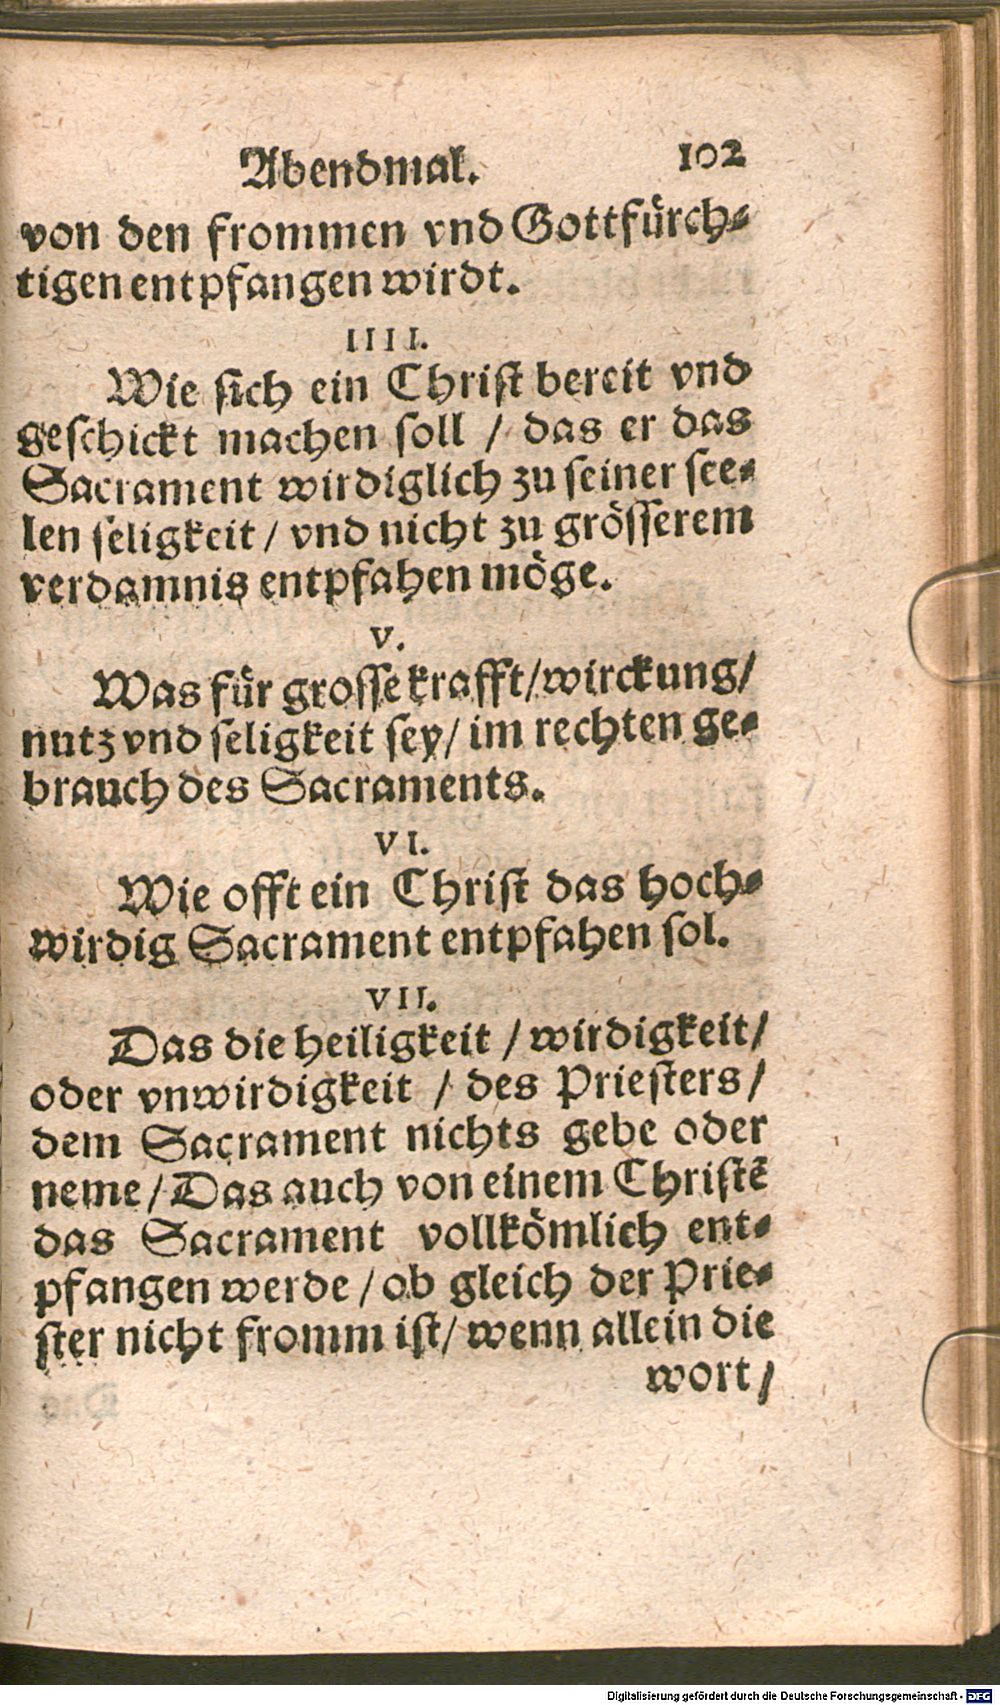 Abendmal. 102
von den frommen vnd Gottfürch-
tigen entpfangen wirdt.
IIII.
Wie sich ein Christ bereit vnd
geschickt machen soll / das er das
Sacrament wirdiglich zu seiner see-
len seligkeit / vnd nicht zu grösserem
verdamnis entpfahen möge.
V.
Was für grosse krafft / wirckung /
nutz vnd seligkeit sey / im rechten ge-
brauch des Sacraments.
VI.
Wie offt ein Christ das hoch-
wirdig Sacrament entpfahen sol.
VII.
Das die heiligkeit / wirdigkeit /
oder vnwirdigkeit / des Priesters /
dem Sacrament nichts gebe oder
neme / Das auch von einem Christē
das Sacrament vollkömlich ent-
pfangen werde / ob gleich der Prie-
ster nicht fromm ist / wenn allein die
wort /
Digitalisierung gefördert durch die Deutsche Forschungsgemeinschaft - DFG